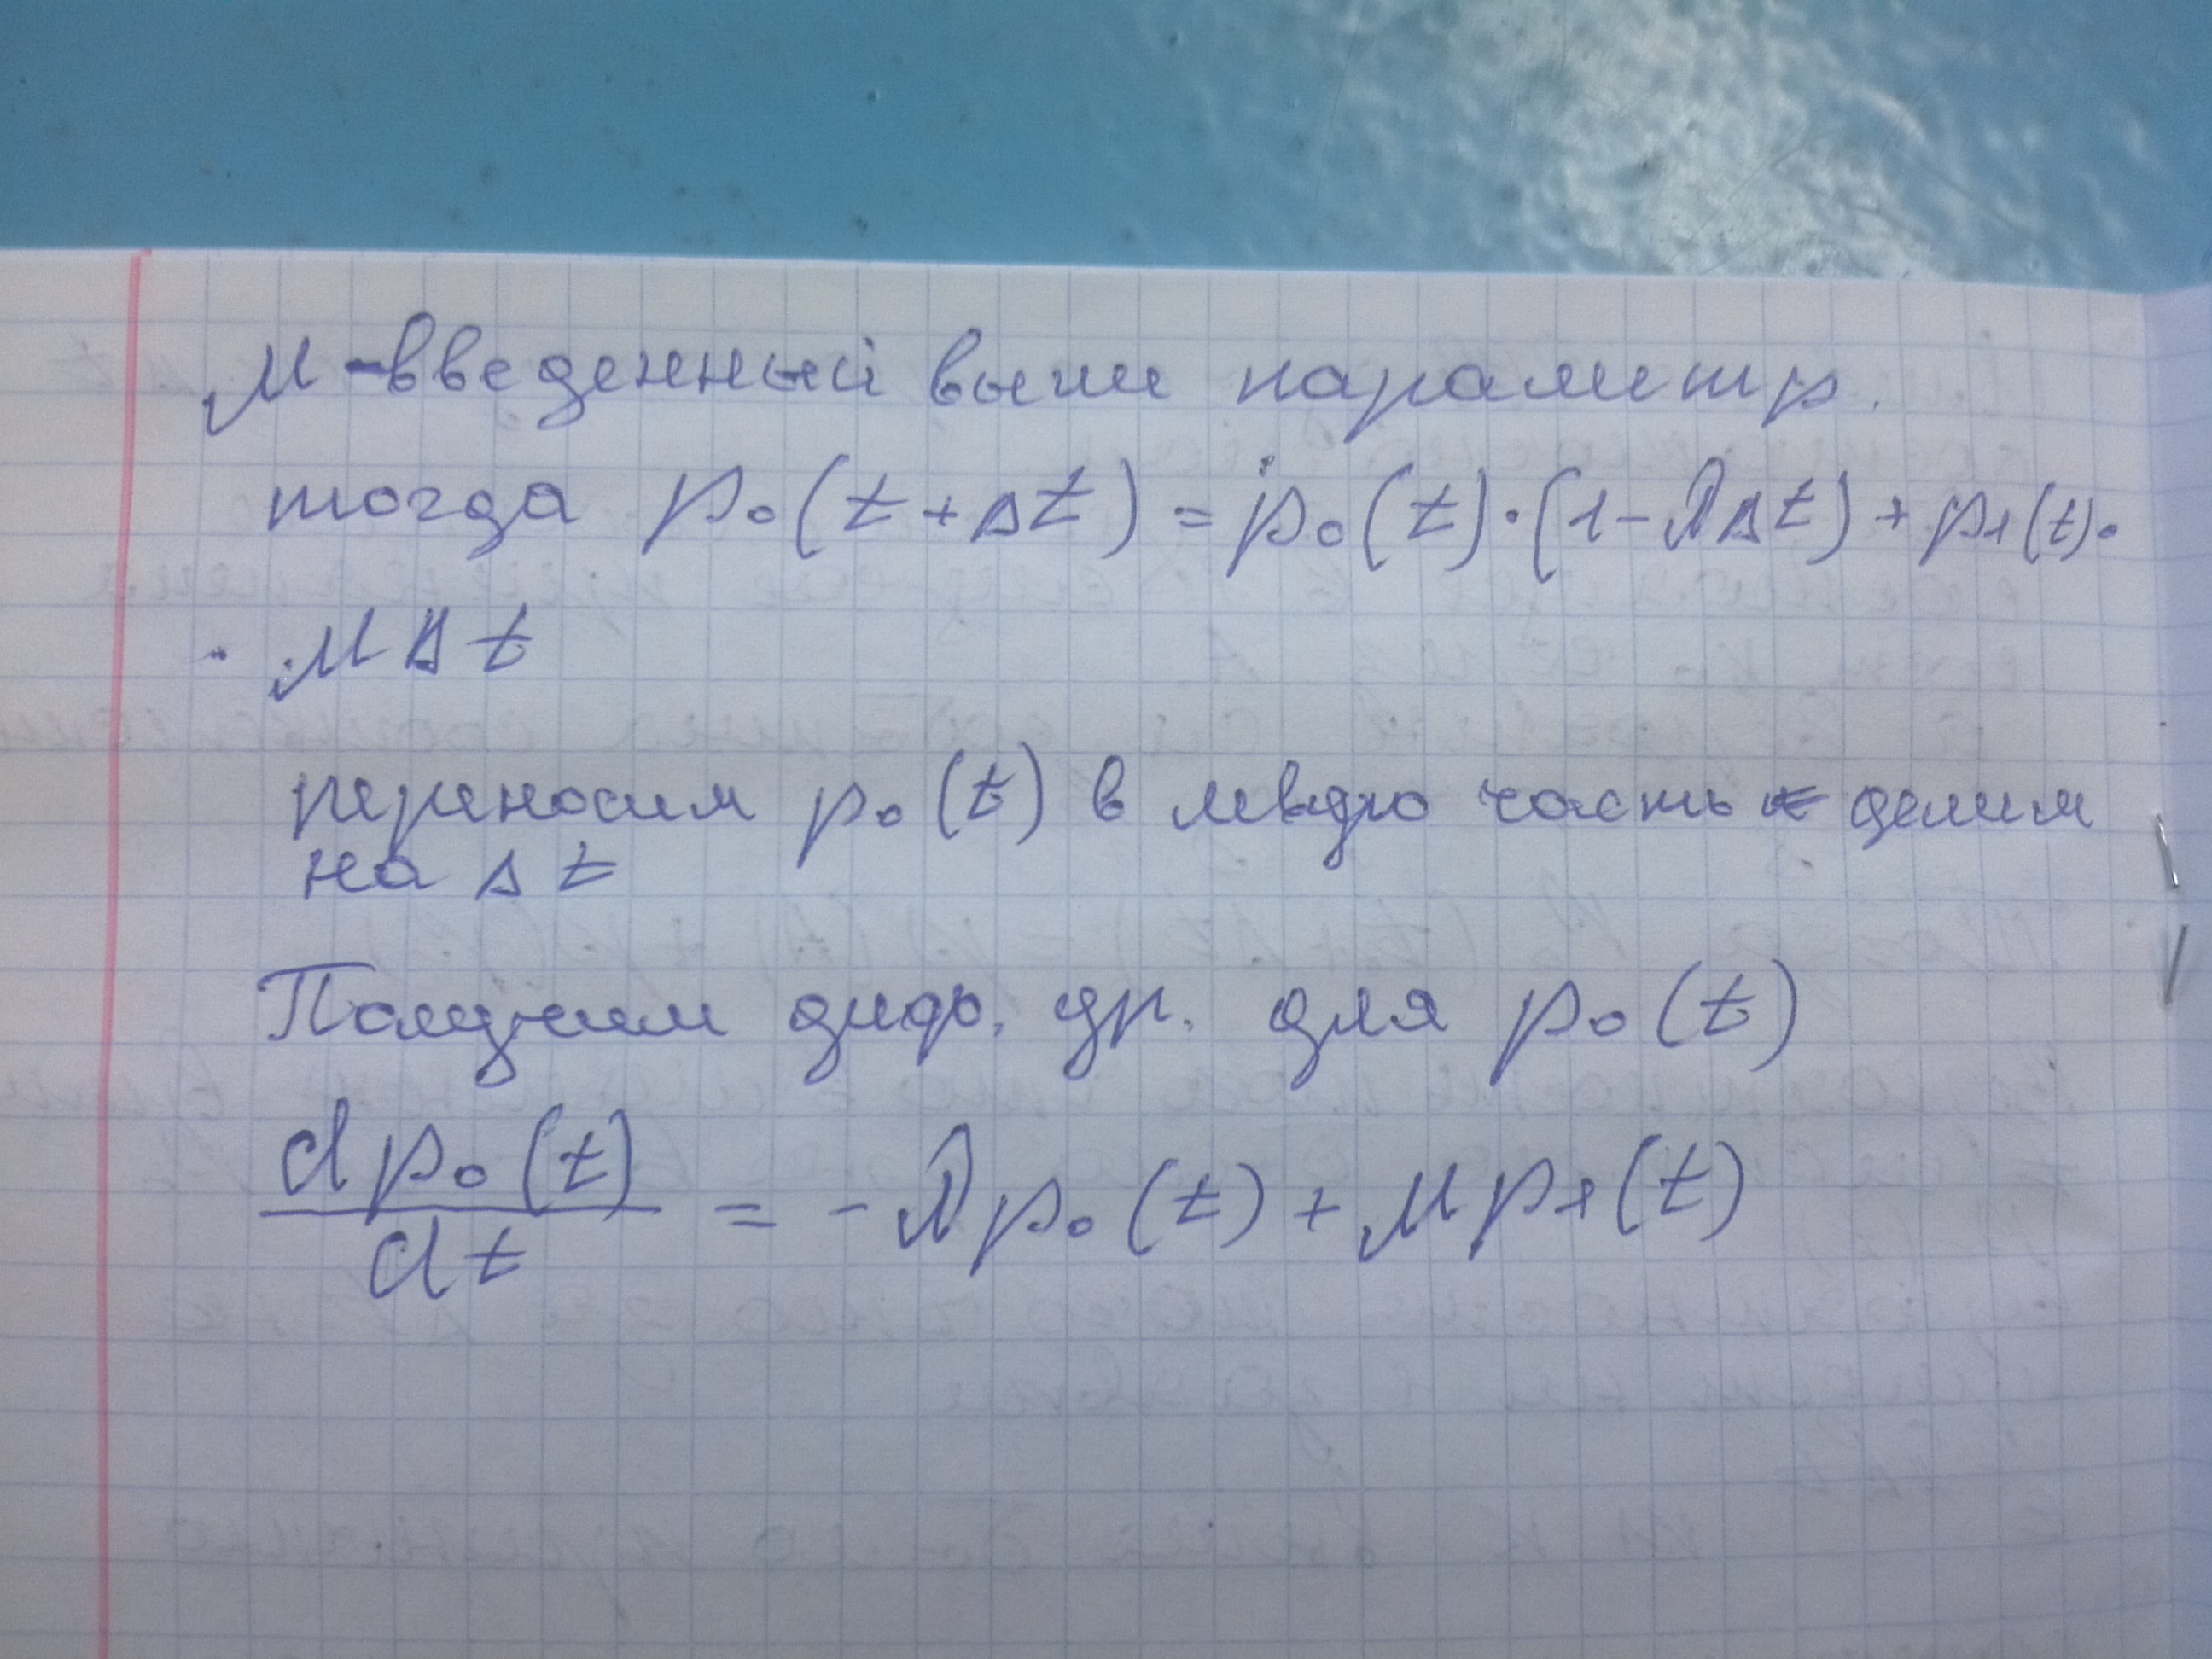 μ - введенный выше параметр.
тогда p₀(t+Δt) = p₀(t)·(1-λΔt) + p₁(t)·
· μΔt
переносим p₀(t) в левую часть и делим
на Δt
Получим диф. ур. для p₀(t)
dp₀(t)/dt = -λp₀(t) + μp₁(t)